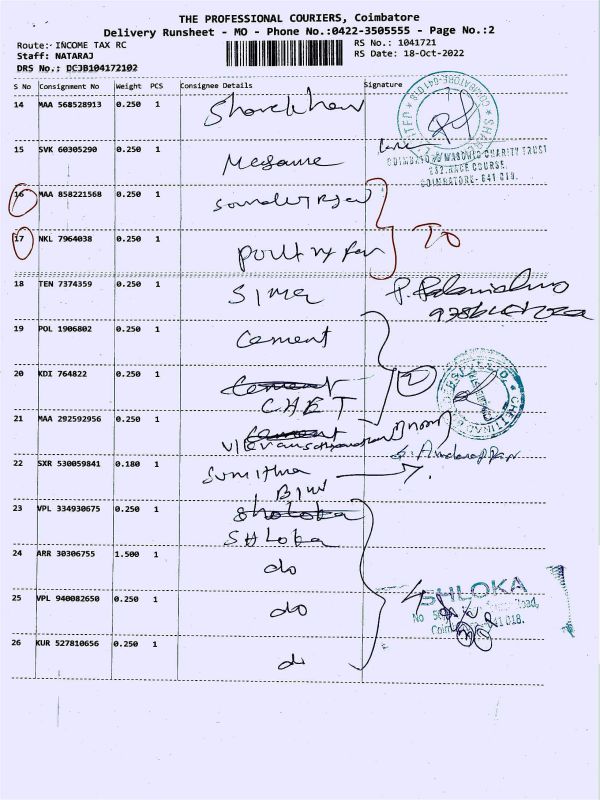 THE PROFESSIONAL COURIERS, Coimbatore
Delivery Runsheet - MO - Phone No.:0422-3505555 - Page No.:2
Route: INCOME TAX RC
RS No.: 1041721
Staff: NATARAJ
RS Date: 18-Oct-2022
DRS No.: DCJB104172102
S No Consignment No Weight PCS Consignee Details Signature
14 MAA 568528913 0.250 1 Sharekhan
15 SVK 60305290 0.250 1 Megame
COIMBATORE MASONIC CHARITY TRUST
232, RACE COURSE,
COIMBATORE - 641 018.
16 MAA 858221568 0.250 1
17 NKL 7964038 0.250 1 poultry
TO
18 TEN 7374359 0.250 1 Sima
19 POL 1906802 0.250 1 cement
20 KDI 764822 0.250 1 cement
CHET
21 MAA 292592956 0.250 1 cement
22 SXR 530059841 0.180 1 Sumithra
23 VPL 334930675 0.250 1 Sholoka
SHLoka
24 ARR 30306755 1.500 1 do
25 VPL 940082650 0.250 1 do
4 SHLOKA
No Road,
641 018.
26 KUR 527810656 0.250 1 do